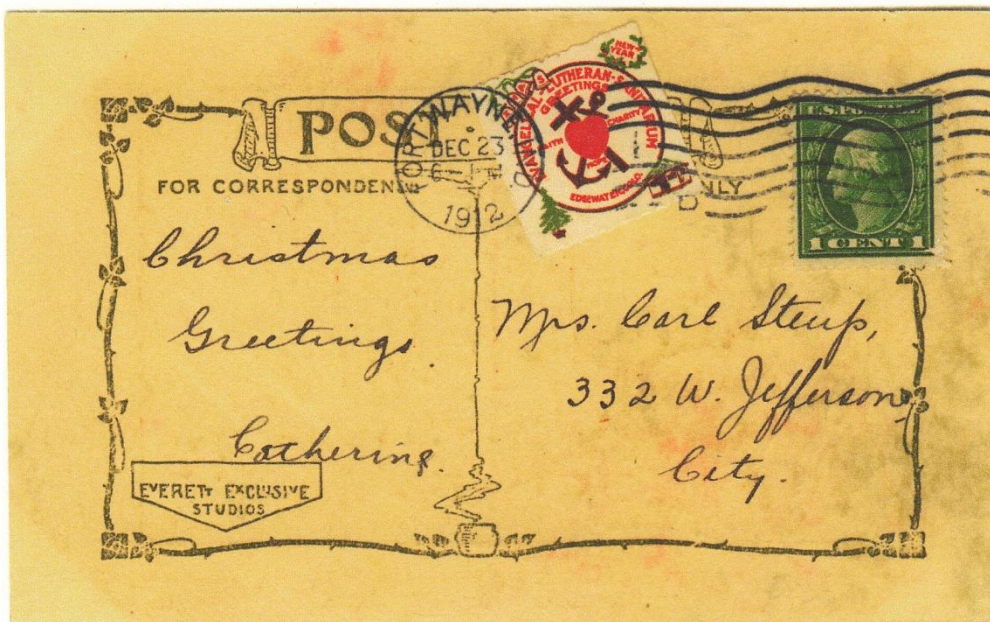 POST
FOR CORRESPONDEN
NLY
FORT WAYNE
DEC 23
1912
NEW YEAR
EVANGELICAL-LUTHERAN-SANITARIUM
GREETINGS
FAITH
CHARITY
EDGEWATER, COLO.
U.S. POSTAGE
1 CENT 1
Christmas
Greetings.
Catherine.
Mrs. Carl Steup,
332 W. Jefferson,
City.
EVERETT EXCLUSIVE
STUDIOS